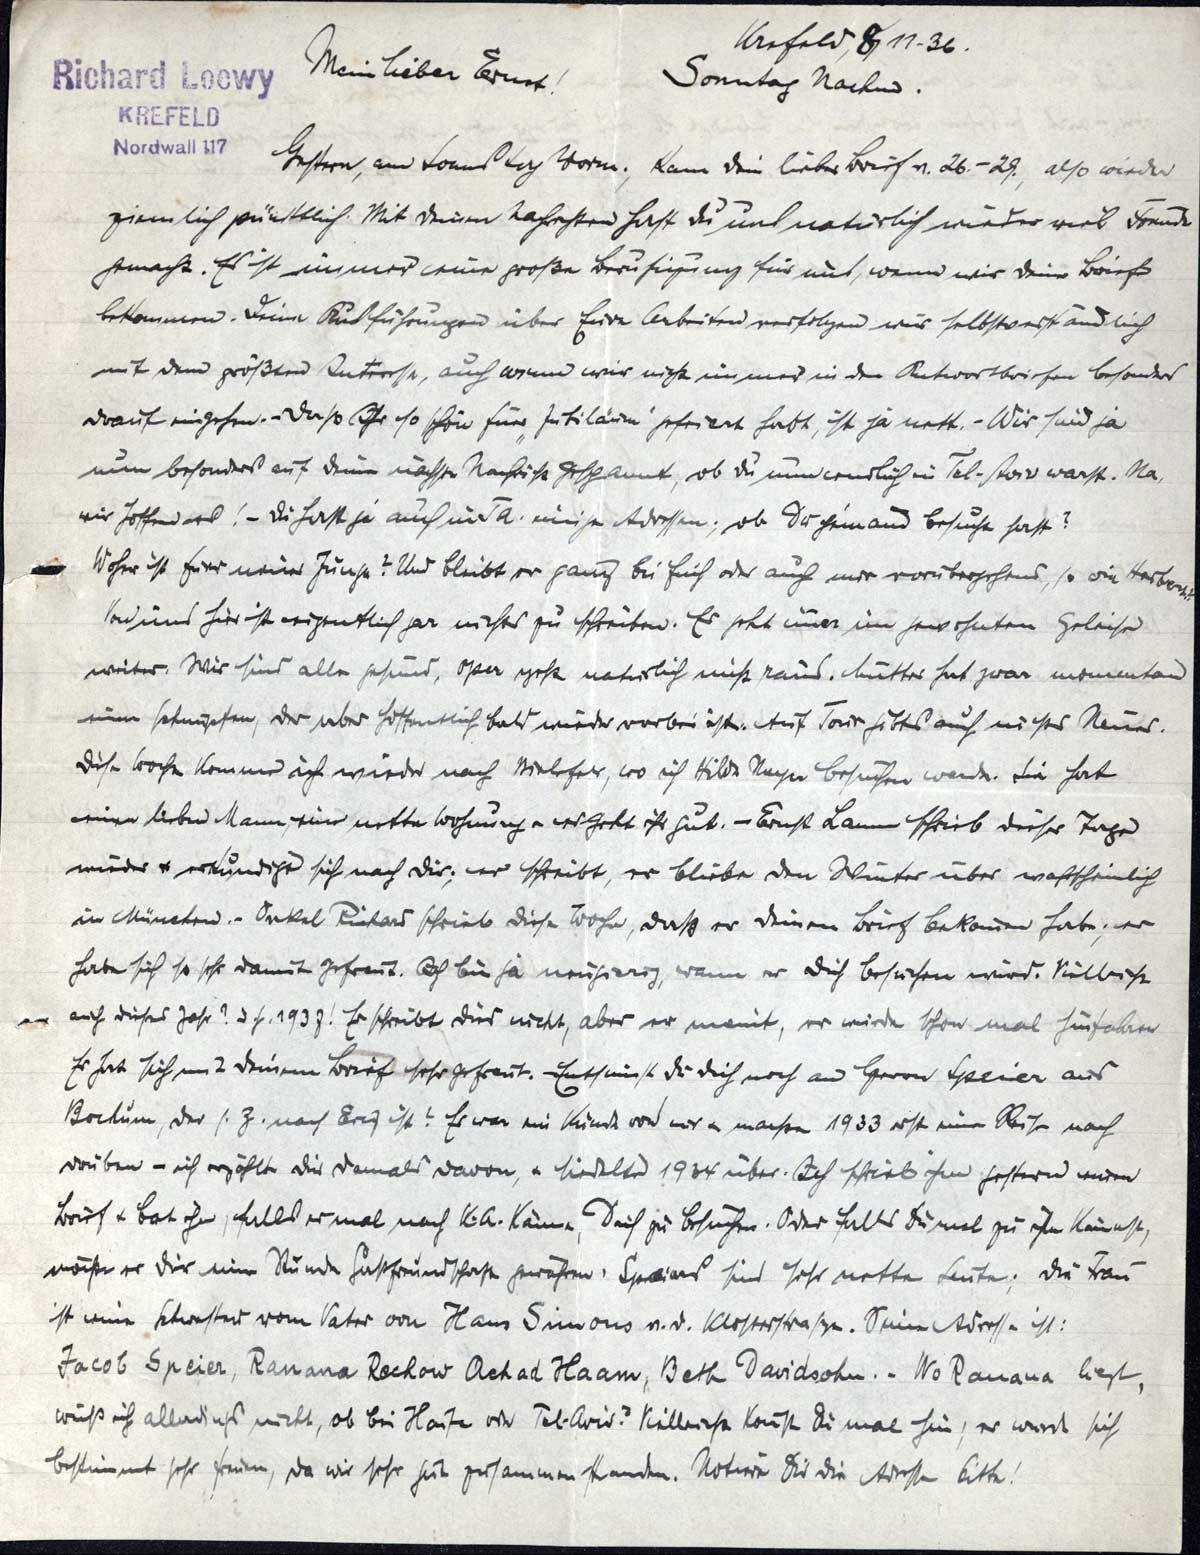 Krefeld, 8/11-36.
Mein lieber Ernst! Sonntag Nachm.
Richard Loewy
KREFELD
Nordwall 117
Gestern, am Samstag Vorm., kam Dein lieber Brief v. 26.-29., also wieder
ziemlich pünktlich. Mit Deinen Nachrichten hast Du uns natürlich wieder viel Freude
gemacht. Es ist immer eine große Beruhigung für uns, wenn wir Deine Briefe
bekommen. Deine Ausführungen über Eure Arbeiten verfolgen wir selbstverständlich
mit dem größten Interesse, auch wenn wir nicht immer in den Antwortbriefen besonders
darauf eingehen. - Dass Ihr so schön Euer "Jubiläum" gefeiert habt, ist ja nett. - Wir sind ja
nun besonders auf Deine nächste Nachricht gespannt, ob Du nun endlich in Tel-Aviv warst. Na,
wir hoffen es! - Du hast ja auch in T.A. einige Adressen; ob Du jemand besucht hast?
Woher ist Euer neuer Junge? Und bleibt er ganz bei Euch oder auch nur vorübergehend, so wie Herbert?
Von uns hier ist eigentlich gar nichts zu schreiben. Es geht immer im gewohnten Geleise
weiter. Wir sind alle gesund, Oper geht natürlich nicht raus. Mutter hat zwar momentan
einen Schnupfen, der aber hoffentlich bald wieder vorbei ist. Auf Tour gibts auch nichts Neues.
Diese Woche komme ich wieder nach Bielefeld, wo ich Hilde besuchen werde. Sie hat
einen lieben Mann, eine nette Wohnung u. es geht ihr gut. - Ernst Lamm schrieb dieser Tage
wieder u. erkundigt sich nach Dir; er schreibt, er bliebe den Winter über wahrscheinlich
in München. - Onkel Richard schrieb diese Woche, daß er Deinen Brief bekommen habe; er
habe sich so sehr damit gefreut. Ich bin ja neugierig, wann er Dich besuchen wird. Vielleicht
auch dieses Jahr? d.h. 1937! Er schreibt dies nicht, aber er meint, er würde schon mal hinfahren
Er hat sich mit Deinem Brief sehr gefreut. - Entsinnst Du Dich noch an Herrn Speier aus
Bochum, der s. Z. nach Erez ist? Er war ein Kunde von mir u. machte 1933 erst eine Reise nach
drüben - ich erzählte Dir damals davon, u. siedelte 1934 über. Ich schrieb ihm gestern einen
Brief u. bat ihn, falls er mal nach K.A. käme, Dich zu besuchen. Oder falls Du mal zu ihm kämst,
möchte er Dir eine Stunde Gastfreundschaft gewähren. Speiers sind sehr nette Leute; die Frau
ist eine Schwester vom Vater von Hans Simons v. d. Klosterstraße. Seine Adresse ist:
Jacob Speier, Ranana Rechow Achad Haam, Beth Davidsohn. - Wo Ranana liegt,
weiß ich allerdings nicht, ob bei Haifa oder Tel-Aviv? Vielleicht kommst Du mal hin; er wird sich
bestimmt sehr freuen, da wir sehr gut zusammen standen. Notiere Dir die Adresse bitte!